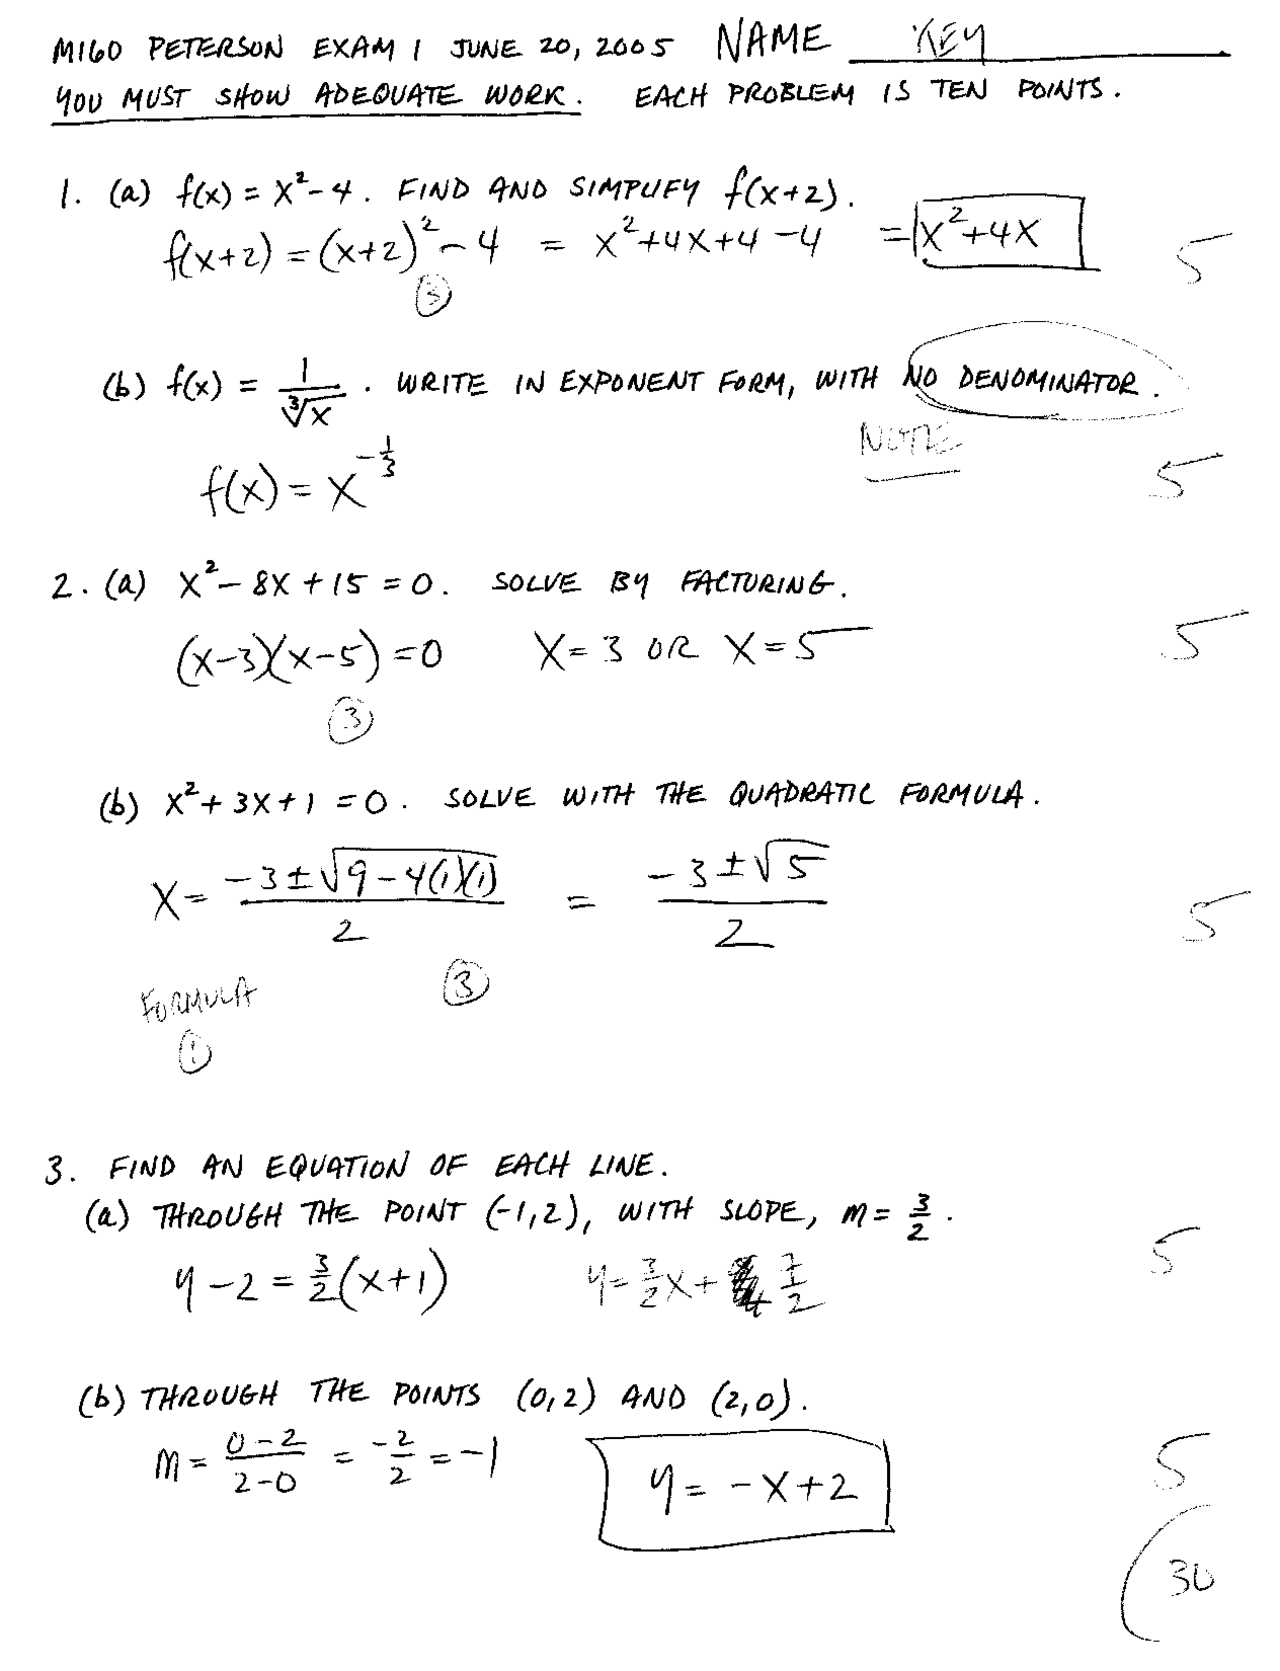 M160 PETERSON EXAM 1 JUNE 20, 2005 NAME KEY
YOU MUST SHOW ADEQUATE WORK. EACH PROBLEM IS TEN POINTS.
1. (a) f(x) = x²-4. FIND AND SIMPLIFY f(x+2).
f(x+2) = (x+2)² - 4 = x²+4x+4-4 = x²+4x 5
③
(b) f(x) = 1/∛x. WRITE IN EXPONENT FORM, WITH NO DENOMINATOR.
NOTE
f(x) = x^(-1/3) 5
2. (a) x² - 8x + 15 = 0. SOLVE BY FACTORING.
(x-3)(x-5) = 0 x = 3 OR x = 5 5
③
(b) x² + 3x + 1 = 0. SOLVE WITH THE QUADRATIC FORMULA.
x = (-3 ± √(9-4(1)(1)))/2 = (-3 ± √5)/2 5
FORMULA ③
①
3. FIND AN EQUATION OF EACH LINE.
(a) THROUGH THE POINT (-1,2), WITH SLOPE, m = 3/2.
y - 2 = 3/2(x+1) y = 3/2x + 7/2 5
(b) THROUGH THE POINTS (0,2) AND (2,0).
m = (0-2)/(2-0) = -2/2 = -1 y = -x+2 5
30